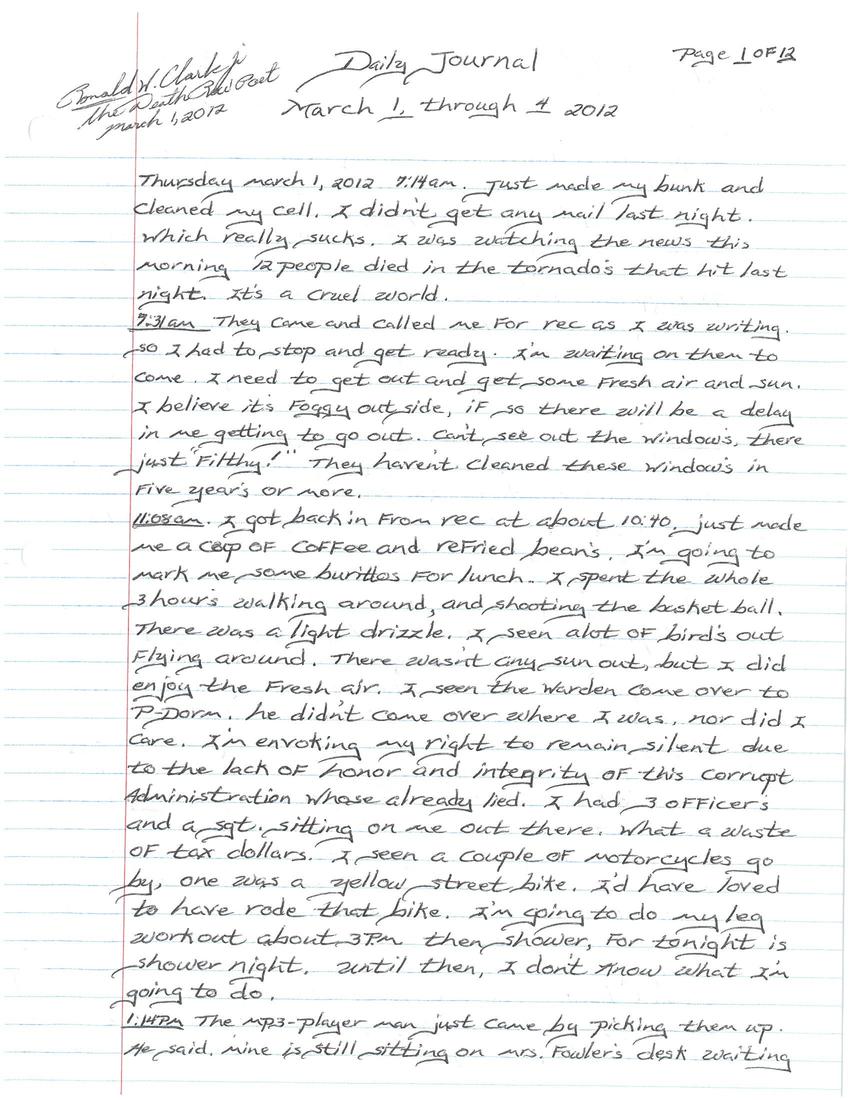 Page 1 OF 12
Daily Journal
Ronald W. Clark Jr
the Death Row Poet
march 1, 2012
March 1, through 4 2012
Thursday march 1, 2012 7:14am. Just made my bunk and
cleaned my cell. I didn't get any mail last night.
Which really sucks. I was watching the news this
morning 12 people died in the tornado's that hit last
night. It's a cruel world.
7:31am They came and called me For rec as I was writing.
so I had to stop and get ready. I'm waiting on them to
come. I need to get out and get some Fresh air and sun.
I believe it's Foggy out side, iF so there will be a delay
in me getting to go out. Can't see out the window's, there
just "Filthy!" They haven't cleaned these window's in
Five year's or more.
11:08am. I got back in From rec at about 10:40. just made
me a cup OF CoFFee and reFried bean's. I'm going to
mark me some burittos For lunch. I spent the whole
3 hour's walking around, and shooting the basket ball.
There was a light drizzle. I seen alot OF bird's out
Flying around. There wasn't any sun out, but I did
enjoy the Fresh air. I seen the Warden come over to
P-Dorm. he didn't come over where I was, nor did I
care. I'm envoking my right to remain silent due
to the lack OF honor and integrity OF this corrupt
Administration whose already lied. I had 3 oFFicer's
and a sgt. sitting on me out there. What a waste
OF tax dollars. I seen a couple OF motorcycles go
by, one was a yellow street bike. I'd have loved
to have rode that bike. I'm going to do my leg
workout about 3PM then shower, For tonight is
shower night. Until then, I don't know what I'm
going to do.
1:14PM The MP3-player man just came by picking them up.
He said. mine is still sitting on mrs. Fowler's desk waiting